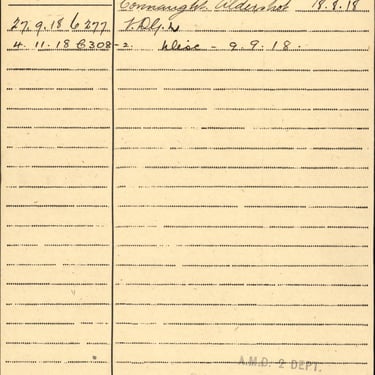 Connaught Aldershot 18.9.18
27.9.18 6277 V.D.G.
4.11.18 6308-2. Disc - 9.9.18.
A.M.D. 2 DEPT.